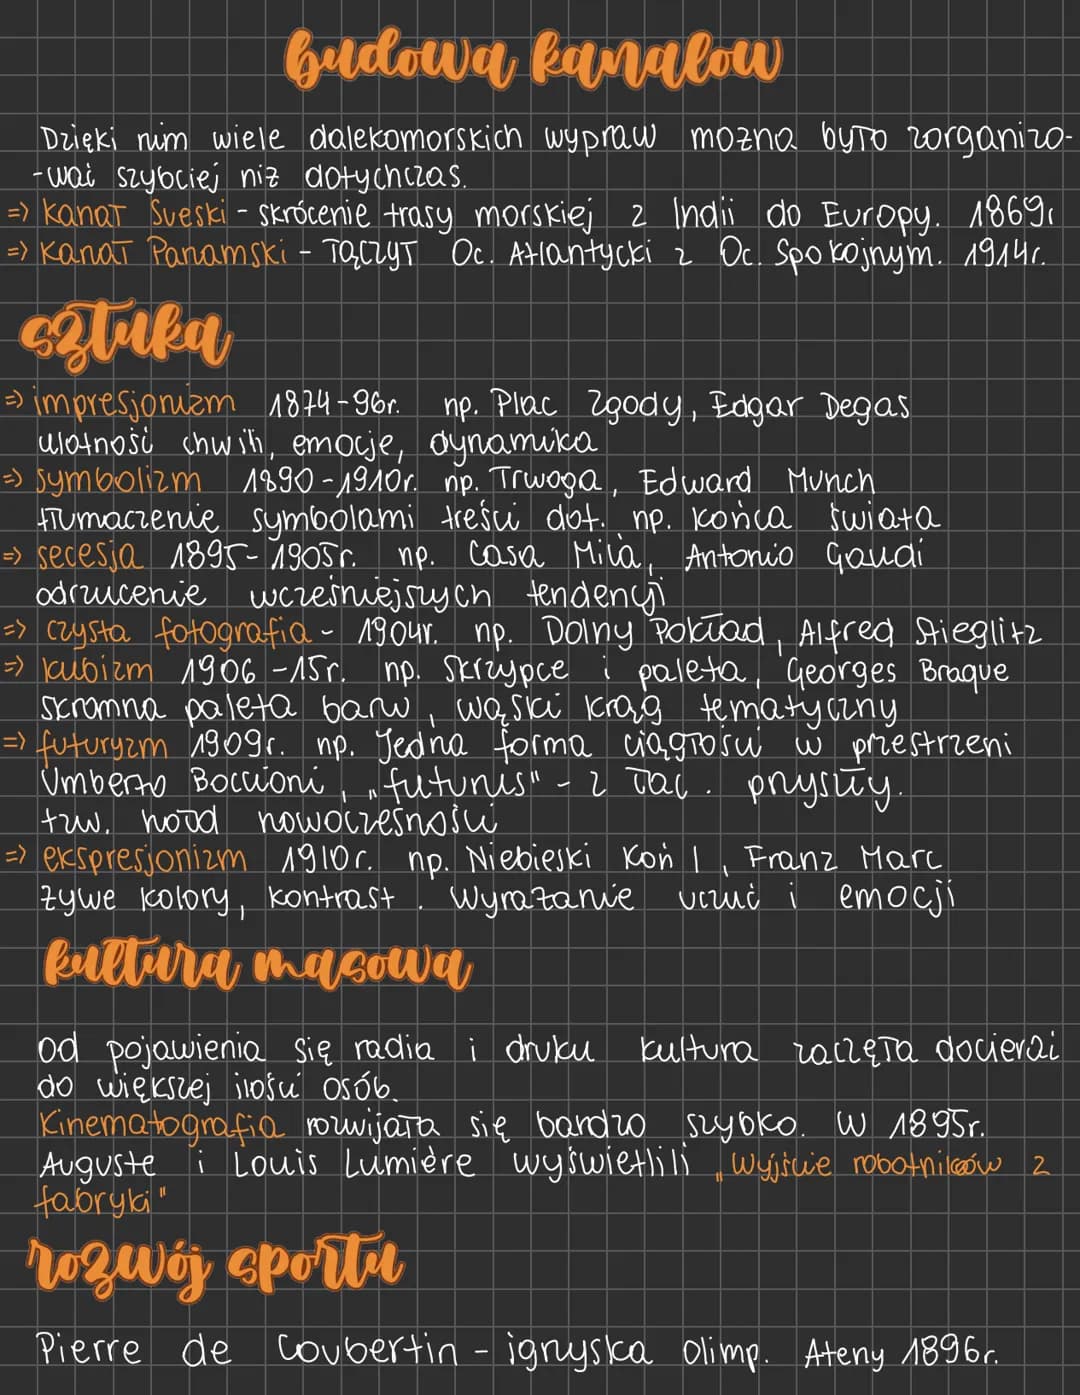 budowa kanałow
Dzięki nim wiele dalekomorskich wypraw można było zorganizo-
-wać szybciej niż dotychczas.
=> kanał Sueski - skrócenie trasy morskiej z Indii do Europy. 1869r
=> kanał Panamski - łączył Oc. Atlantycki z Oc. Spokojnym. 1914r.
sztuka
=> impresjonizm 1874-96r. np. Plac Zgody, Edgar Degas
ulotność chwili, emocje, dynamika
=> symbolizm 1890-1910r. np. Trwoga, Edward Munch
tłumaczenie symbolami treści dot. np. końca świata
=> secesja 1895-1905r. np. Casa Milà, Antonio Gaudi
odrzucenie wcześniejszych tendencji
=> czysta fotografia - 1904r. np. Dolny Pokład, Alfred Stieglitz
=> kubizm 1906-15r. np. Skrzypce i paleta, Georges Braque
skromna paleta barw, wąski krąg tematyczny
=> futuryzm 1909r. np. Jedna forma ciągłości w przestrzeni
Umberto Boccioni, „futurus" - z łac. przyszły.
tzw. hołd nowoczesności
=> ekspresjonizm 1910r. np. Niebieski Koń I, Franz Marc
żywe kolory, kontrast. Wyrażanie uczuć i emocji
kultura masowa
Od pojawienia się radia i druku kultura zaczęła docierać
do większej ilości osób.
Kinematografia rozwijała się bardzo szybko. W 1895r.
Auguste i Louis Lumière wyświetlili „Wyjście robotników z
fabryki"
rozwój sportu
Pierre de Coubertin - igrzyska olimp. Ateny 1896r.